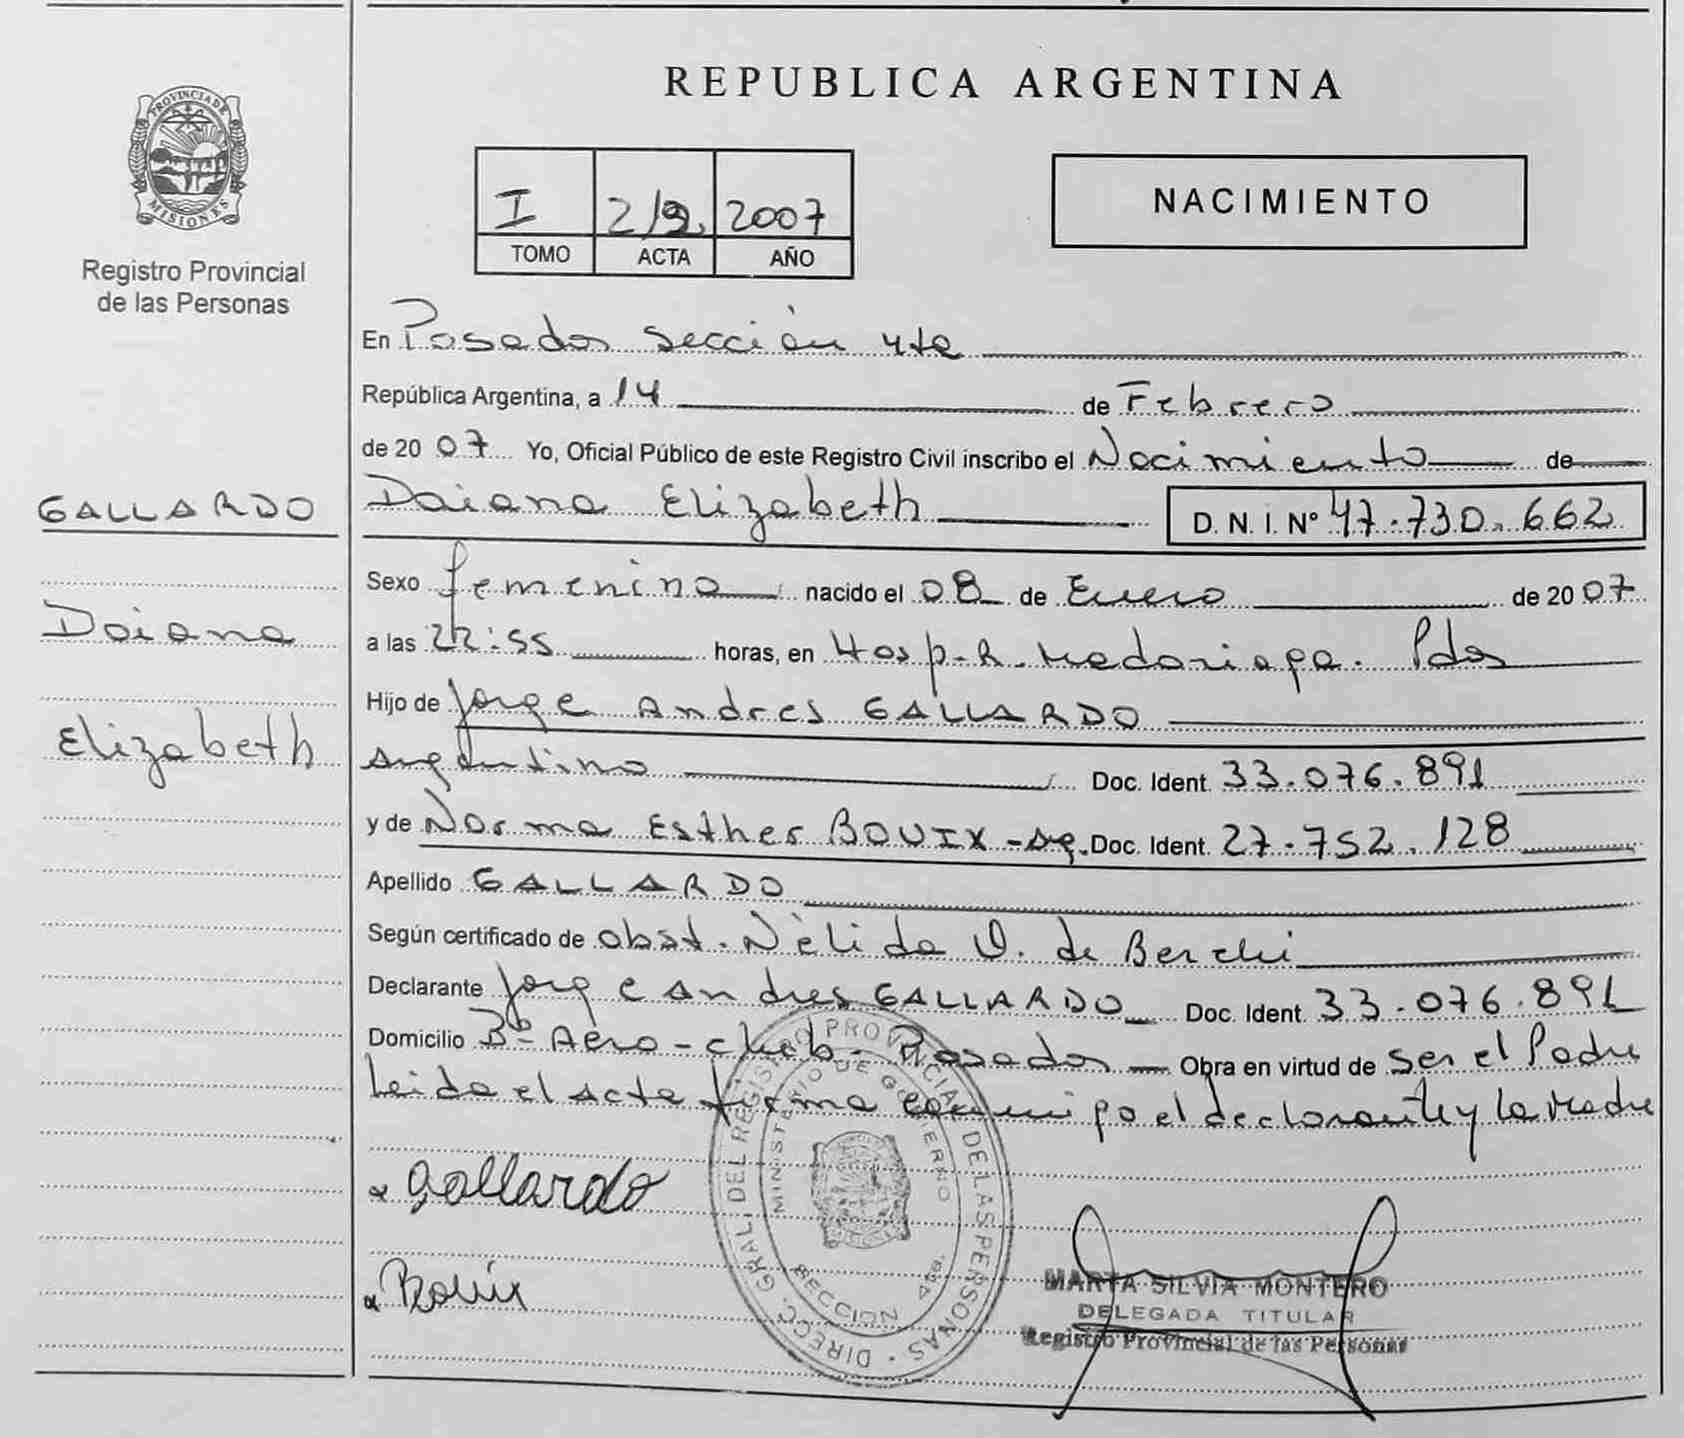 PROVINCIA DE
MISIONES
Registro Provincial
de las Personas
GALLARDO
Daiana
Elizabeth
REPUBLICA ARGENTINA
I 2007
TOMO ACTA AÑO
NACIMIENTO
En Posadas sección 4ta
República Argentina, a 14 de Febrero
de 2007 Yo, Oficial Público de este Registro Civil inscribo el Nacimiento de
Daiana Elizabeth D. N. I. Nº 47.730.662
Sexo femenino nacido el 08 de Enero de 2007
a las 22:55 horas, en Hosp. R. Madariaga. Pdas
Hijo de Jorge Andres GALLARDO
Argentino Doc. Ident. 33.076.891
y de Norma Esther BOUIX - Ag. Doc. Ident. 27.752.128
Apellido GALLARDO
Según certificado de obst. Nèlida O. de Berchi
Declarante Jorge Andres GALLARDO Doc. Ident. 33.076.891
Domicilio Bº Aero-club - Posadas Obra en virtud de ser el Padre
Leida el acta firma conmigo el declarante y la Madre
Gallardo
Bouix
DIRECC. GRAL. DEL REGISTRO PROVINCIAL DE LAS PERSONAS
MINISTERIO DE GOBIERNO
SECCION 4ta.
MARTA SILVIA MONTERO
DELEGADA TITULAR
Registro Provincial de las Personas